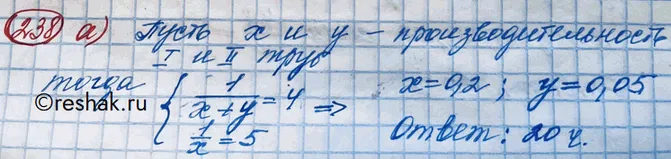 238 а) Пусть x и y – производительность
I и II труб
тогда { 1/(x+y) = 4 ⇒ x=0,2; y=0,05
1/x = 5 Ответ: 20 ч.
©reshak.ru